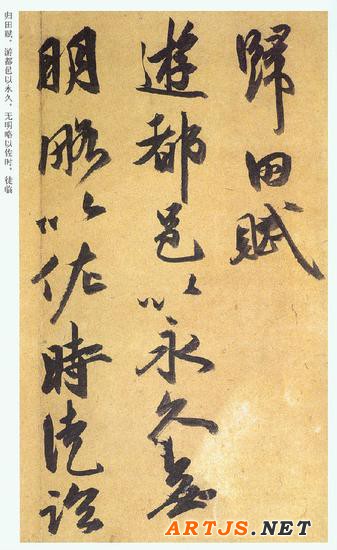 歸田賦
遊都邑以永久無
明略以佐時徒臨
归田赋，游都邑以永久，无明略以佐时，徒临
ARTJS.NET